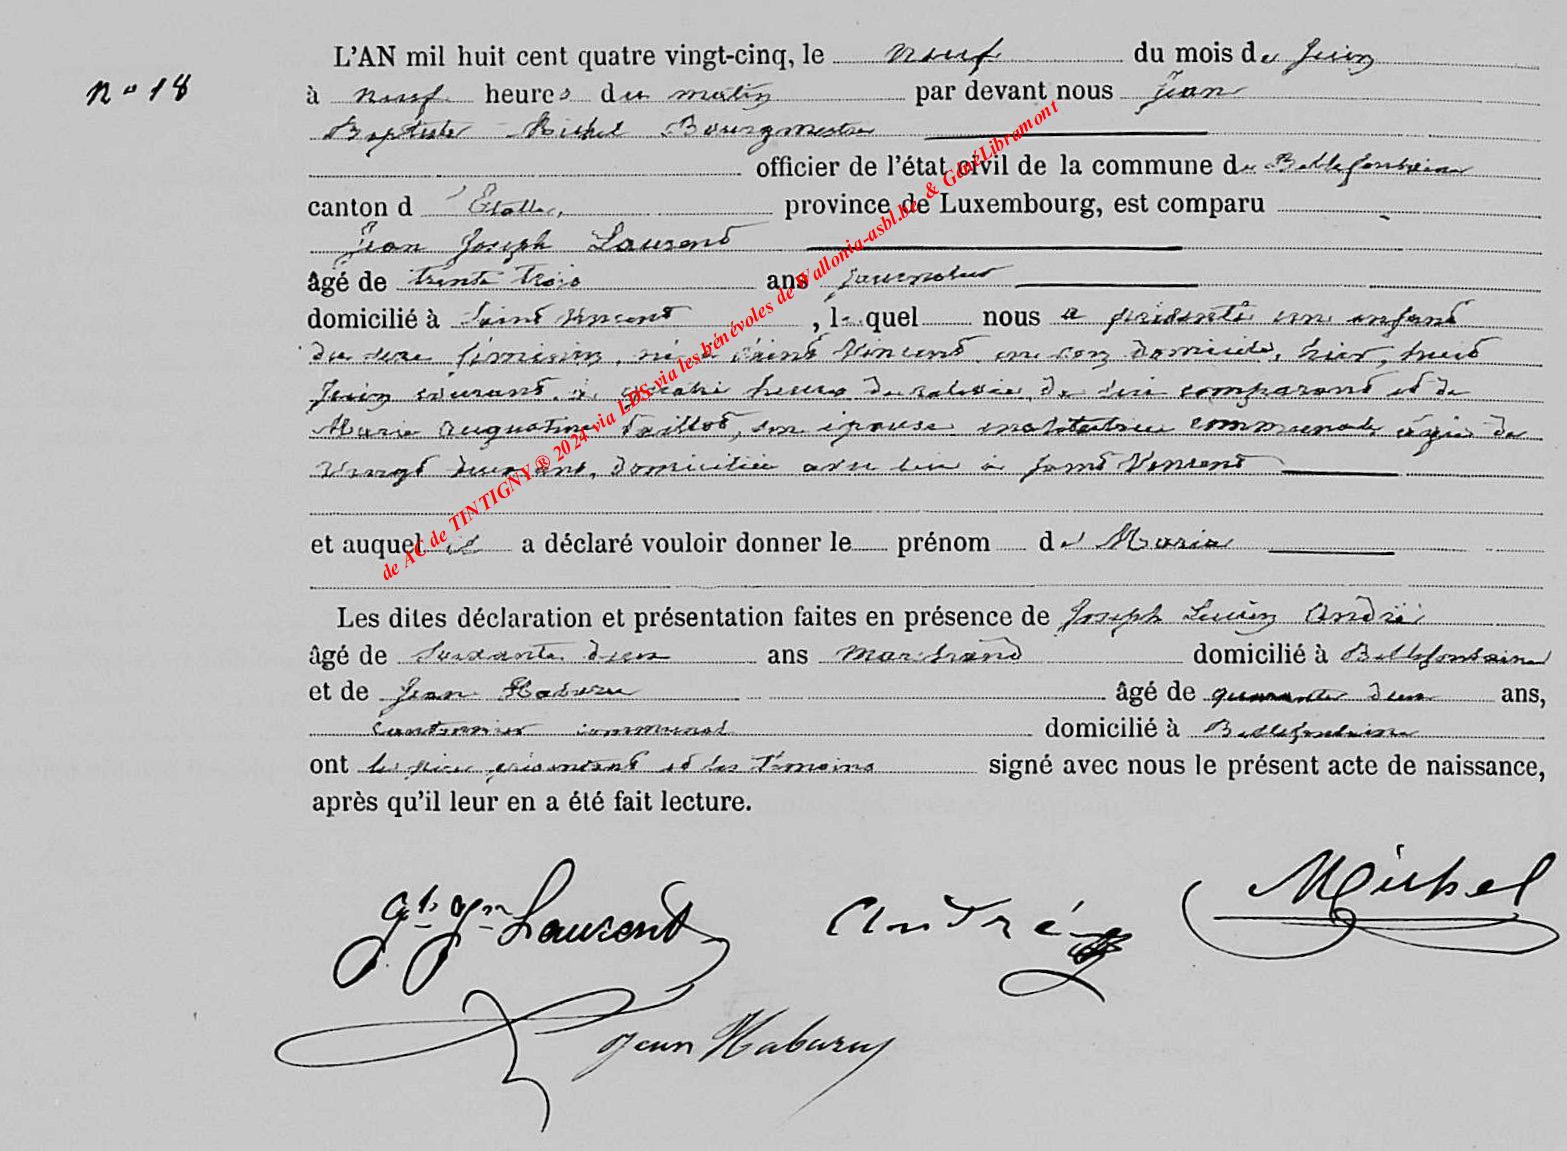 N° 18
L'AN mil huit cent quatre vingt-cinq, le neuf du mois de Juin
à neuf heures du matin par devant nous Jean
Baptiste Michel Bourgmestre
officier de l'état civil de la commune de Bellefontaine
canton d'Etalle, province de Luxembourg, est comparu
Jean Joseph Laurent
âgé de trente trois ans journalier
domicilié à Saint Vincent, lequel nous a présenté un enfant
du sexe féminin, né à Saint Vincent en son domicile, hier, huit
Juin courant, à quatre heures de relevée, de lui comparant et de
Marie Augustine, son épouse institutrice communale âgée de
vingt deux ans, domiciliée avec lui à Saint Vincent
et auquel il a déclaré vouloir donner le prénom de Maria
Les dites déclaration et présentation faites en présence de Joseph Lucien André
âgé de soixante deux ans Marchand domicilié à Bellefontaine
et de Jean Habaru âgé de quarante deux ans,
cantonnier communal domicilié à Bellefontaine
ont les père présentant et les témoins signé avec nous le présent acte de naissance,
après qu'il leur en a été fait lecture.
Laurent André Michel
Jean Habaru
de AC de TINTIGNY ® 2024 via LDS via les bénévoles de Wallonia-asbl.be & GénéLibramont